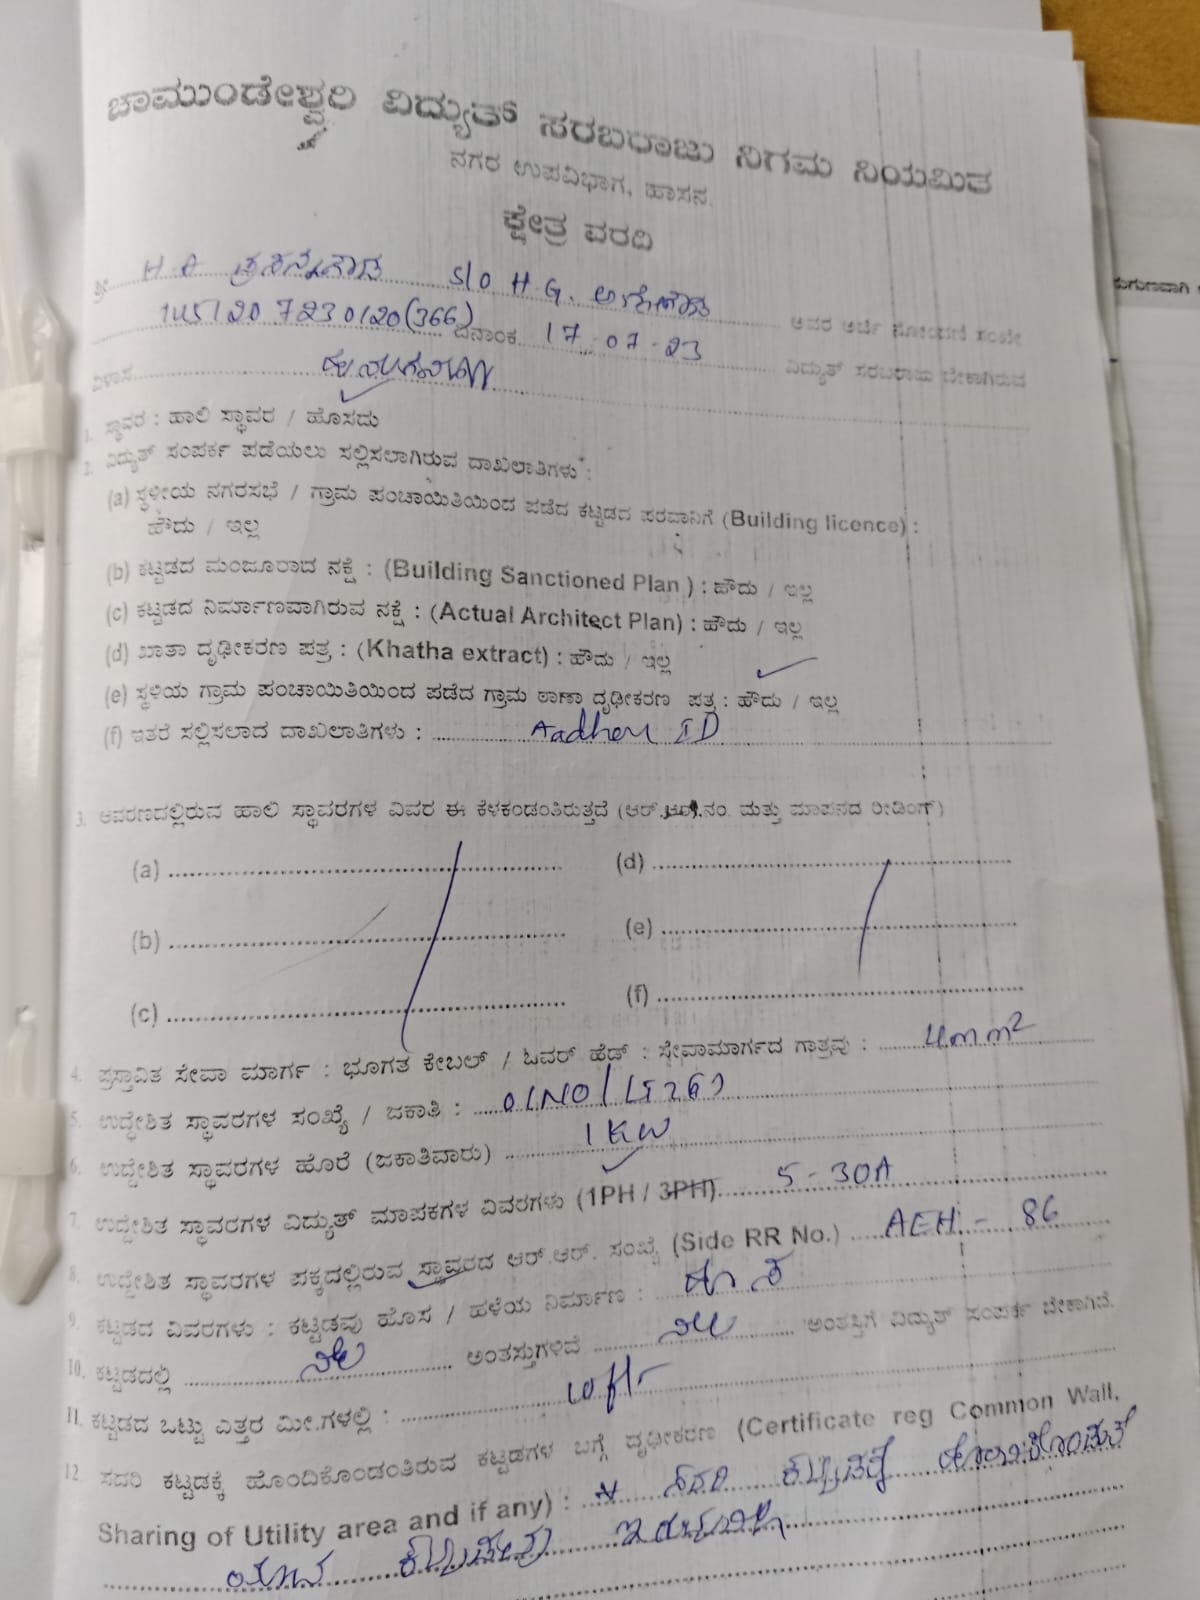 ಚಾಮುಂಡೇಶ್ವರಿ ವಿದ್ಯುತ್ ಸರಬರಾಜು ನಿಗಮ ನಿಯಮಿತ
ನಗರ ಉಪವಿಭಾಗ, ಹಾಸನ.
ಕ್ಷೇತ್ರ ವರದಿ
ಶ್ರೀ H A S/O H G. ಅವರ ಅರ್ಜಿ ನೋಂದಣಿ ಸಂಖ್ಯೆ
ದಿನಾಂಕ 17-07-23 ವಿದ್ಯುತ್ ಸರಬರಾಜು ಬೇಕಾಗಿರುವ
ವಿಳಾಸ
1. ಸ್ಥಾವರ : ಹಾಲಿ ಸ್ಥಾವರ / ಹೊಸದು
2. ವಿದ್ಯುತ್ ಸಂಪರ್ಕ ಪಡೆಯಲು ಸಲ್ಲಿಸಲಾಗಿರುವ ದಾಖಲಾತಿಗಳು :
(a) ಸ್ಥಳೀಯ ನಗರಸಭೆ / ಗ್ರಾಮ ಪಂಚಾಯಿತಿಯಿಂದ ಪಡೆದ ಕಟ್ಟಡದ ಪರವಾನಿಗೆ (Building licence) :
ಹೌದು / ಇಲ್ಲ
(b) ಕಟ್ಟಡದ ಮಂಜೂರಾದ ನಕ್ಷೆ : (Building Sanctioned Plan ) : ಹೌದು / ಇಲ್ಲ
(c) ಕಟ್ಟಡದ ನಿರ್ಮಾಣವಾಗಿರುವ ನಕ್ಷೆ : (Actual Architect Plan) : ಹೌದು / ಇಲ್ಲ
(d) ಖಾತಾ ದೃಢೀಕರಣ ಪತ್ರ : (Khatha extract) : ಹೌದು / ಇಲ್ಲ
(e) ಸ್ಥಳಿಯ ಗ್ರಾಮ ಪಂಚಾಯಿತಿಯಿಂದ ಪಡೆದ ಗ್ರಾಮ ಠಾಣಾ ದೃಢೀಕರಣ ಪತ್ರ : ಹೌದು / ಇಲ್ಲ
(f) ಇತರೆ ಸಲ್ಲಿಸಲಾದ ದಾಖಲಾತಿಗಳು : ID
3. ಆವರಣದಲ್ಲಿರುವ ಹಾಲಿ ಸ್ಥಾವರಗಳ ವಿವರ ಈ ಕೆಳಕಂಡಂತಿರುತ್ತದೆ (ಆರ್.ಆರ್.ನಂ. ಮತ್ತು ಮಾಪನದ ರೀಡಿಂಗ್)
(a) (d)
(b) (e)
(c) (f)
4. ಪ್ರಸ್ತಾವಿತ ಸೇವಾ ಮಾರ್ಗ : ಭೂಗತ ಕೇಬಲ್ / ಓವರ್ ಹೆಡ್ : ಸೇವಾಮಾರ್ಗದ ಗಾತ್ರವು : 4mm²
5. ಉದ್ದೇಶಿತ ಸ್ಥಾವರಗಳ ಸಂಖ್ಯೆ / ಜಕಾತಿ :
6. ಉದ್ದೇಶಿತ ಸ್ಥಾವರಗಳ ಹೊರೆ (ಜಕಾತಿವಾರು) 1 KW
7. ಉದ್ದೇಶಿತ ಸ್ಥಾವರಗಳ ವಿದ್ಯುತ್ ಮಾಪಕಗಳ ವಿವರಗಳು (1PH / 3PH) 5-30A
8. ಉದ್ದೇಶಿತ ಸ್ಥಾವರಗಳ ಪಕ್ಕದಲ್ಲಿರುವ ಸ್ಥಾವರದ ಆರ್.ಆರ್. ಸಂಖ್ಯೆ (Side RR No.) AEH - 86
9. ಕಟ್ಟಡದ ವಿವರಗಳು : ಕಟ್ಟಡವು ಹೊಸ / ಹಳೆಯ ನಿರ್ಮಾಣ : ಹೊಸ
10. ಕಟ್ಟಡದಲ್ಲಿ ನೆಲ ಅಂತಸ್ತುಗಳಿವೆ ನೆಲ ಅಂತಸ್ತಿಗೆ ವಿದ್ಯುತ್ ಸಂಪರ್ಕ ಬೇಕಾಗಿವೆ.
11. ಕಟ್ಟಡದ ಒಟ್ಟು ಎತ್ತರ ಮೀ.ಗಳಲ್ಲಿ : 10 ft
12. ಸದರಿ ಕಟ್ಟಡಕ್ಕೆ ಹೊಂದಿಕೊಂಡಂತಿರುವ ಕಟ್ಟಡಗಳ ಬಗ್ಗೆ ದೃಢೀಕರಣ (Certificate reg Common Wall,
Sharing of Utility area and if any) : ಸದರಿ ಕಟ್ಟಡಕ್ಕೆ ಹೊಂದಿಕೊಂಡಂತೆ
ಯಾವ ಕಟ್ಟಡವು ಇರುವುದಿಲ್ಲ